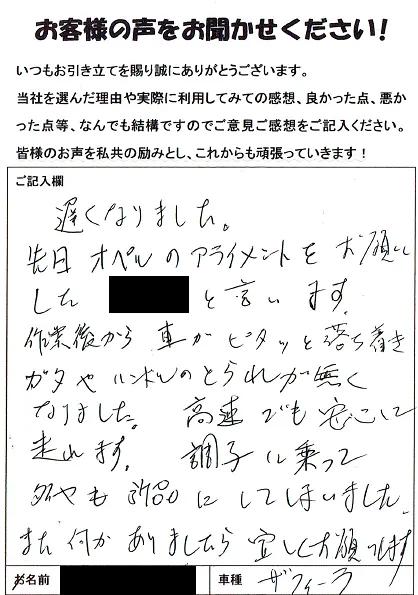 お客様の声をお聞かせください！
いつもお引き立てを賜り誠にありがとうございます。
当社を選んだ理由や実際に利用してみての感想、良かった点、悪か
った点等、なんでも結構ですのでご意見ご感想をご記入ください。
皆様のお声を私共の励みとし、これからも頑張っていきます！
ご記入欄
遅くなりました。
先日 オペルのアライメントを お願い
した と言います。
作業後から 車が ピタッと落ち着き
ガタや ハンドルのとられが無く
なりました。 高速でも安心して
走れます。 調子に乗って
タイヤも にしてしまいました
また何かありましたら宜しくお願いします
お名前
車種 ザフィーラ